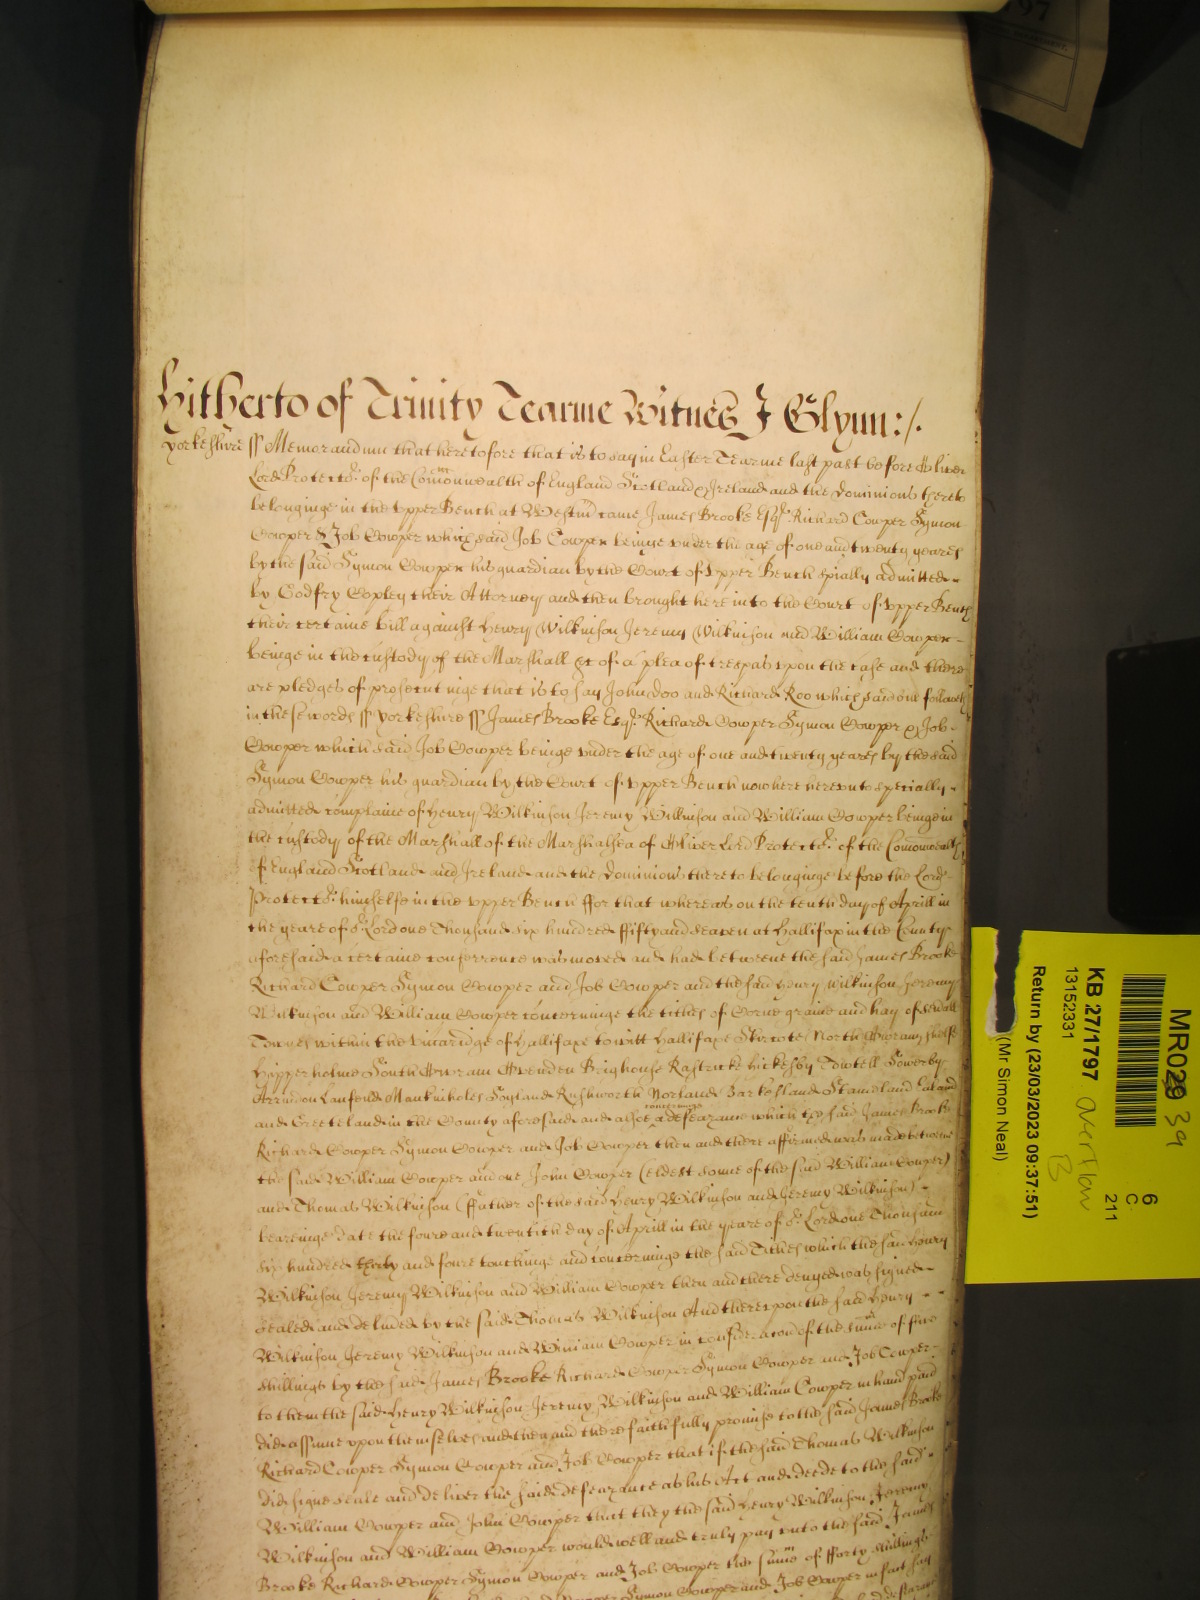 Hitherto of Trinity Tearme Witnes J Glynn:/.
Yorkeshire ss Memorandum that heretofore that is to say in Easter Tearme last past before Oliver
Lord Protector of the Comonwealth of England Scotland & Ireland and the Dominions thereto
belonginge in the Upper Bench at Westm came James Brooke Esqr Richard Cowper Symon
Cowper & Job Cowper which said Job Cowper beinge under the age of one and twenty yeares
by the said Symon Cowper his guardian by the Court of Upper Bench spially admitted
by Godfry Copley their Attorney and then brought here into the Court of Upper Bench
their certaine bill against Henry Wilkinson Jeremy Wilkinson and William Cowper
beinge in the custody of the Marshall &c of a plea of trespas upon the case and there
are pledges of prosecutinge that is to say John Doo and Richard Roo which said one followeth
in these words ss Yorkeshire ss James Brooke Esqr Richard Cowper Symon Cowper & Job
Cowper which said Job Cowper beinge under the age of one and twenty yeares by the said
Symon Cowper his guardian by the Court of Upper Bench now here hereunto specially
admitted complaine of Henry Wilkinson Jeremy Wilkinson and William Cowper beinge in
the custody of the Marshall of the Marshalsea of Oliver Lord Protector of the Comonwealth
of England Scotland and Ireland and the Dominions thereto belonginge before the Lord
Protector himselfe in the Upper Bench ffor that whereas on the tenth day of Aprill in
the yeare of or Lord one Thousand six hundred ffifty and seaven at Hallifax in the County
aforesaid a certaine conferrence was moved and had betweene the said James Brooke
Richard Cowper Symon Cowper and Job Cowper and the said Henry Wilkinson Jeremy
Wilkinson and William Cowper concerninge the tithes of Corne graine and hay of
Townes within the vicaridge of Hallifaxe to witt Hallifaxe Skircote North Owram Shelfe
Hipperholme South Owram Ovenden Brighouse Rastricke Sowerby
Soyland Rishworth Norland Barkesland Stainland
and Greetland in the County aforesaid and alsoe concerninge a defeazance which the said James Brooke
Richard Cowper Symon Cowper and Job Cowper then and there affirmed was made betweene
the said William Cowper and one John Cowper (eldest sonne of the said William Cowper)
and Thomas Wilkinson (ffather of the said Henry Wilkinson and Jeremy Wilkinson)
beareinge date the foure and twentith day of Aprill in the yeare of or Lord one Thousand
six hundred thirty and foure touchinge and concerninge the said Tithes which the said Henry
Wilkinson Jeremy Wilkinson and William Cowper then and there denyed was signed
sealed and delivered by the said Thomas Wilkinson And thereupon the said Henry
Wilkinson Jeremy Wilkinson and William Cowper in consideracon of the sume of five
shillings by the said James Brooke Richard Cowper Symon Cowper and Job Cowper
to them the said Henry Wilkinson Jeremy Wilkinson and William Cowper in hand paid
did assume upon themselves and then and there faithfully promise to the said James Brooke
Richard Cowper Symon Cowper and Job Cowper that if the said Thomas Wilkinson
did signe seale and deliver the said defeazance as his Act and deede to the said
William Cowper and John Cowper that they the said Henry Wilkinson Jeremy
Wilkinson and William Cowper would well and truly pay unto the said James
Brooke Richard Cowper Symon Cowper and Job Cowper the sume of fforty shillings
Symon Cowper and Job Cowper in fact say
MR029 39
6
C
211
KB 27/1797 overflow
B
13152331
Return by (23/03/2023 09:37:51)
(Mr Simon Neal)